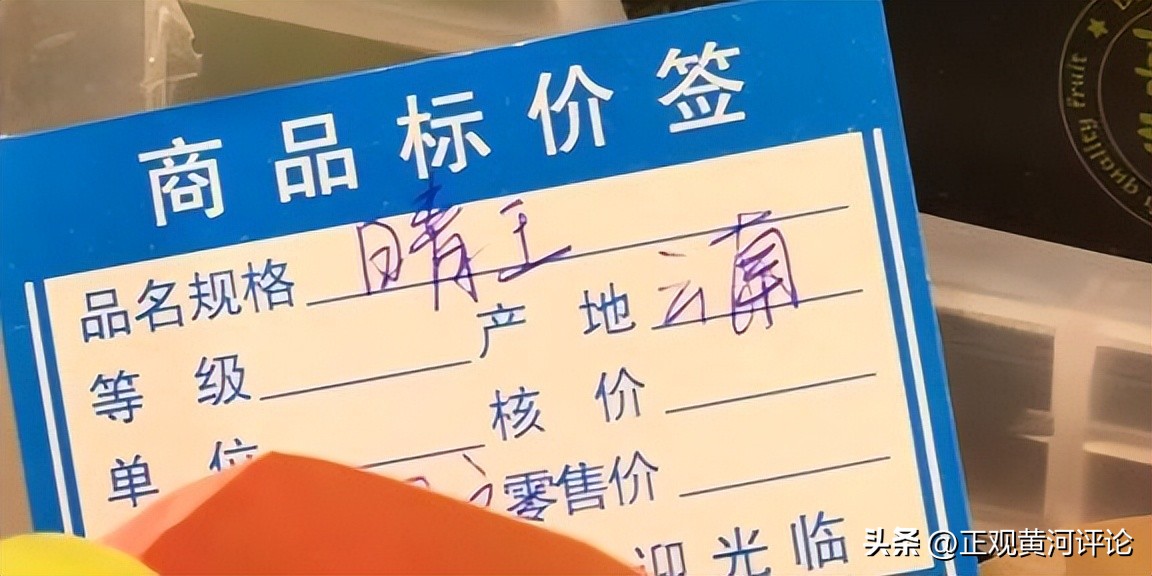 商品标价签
品名规格 晴王
产地 云南
等级
核价
单位
零售价
迎光临
valley fruit
头条 @正观黄河评论